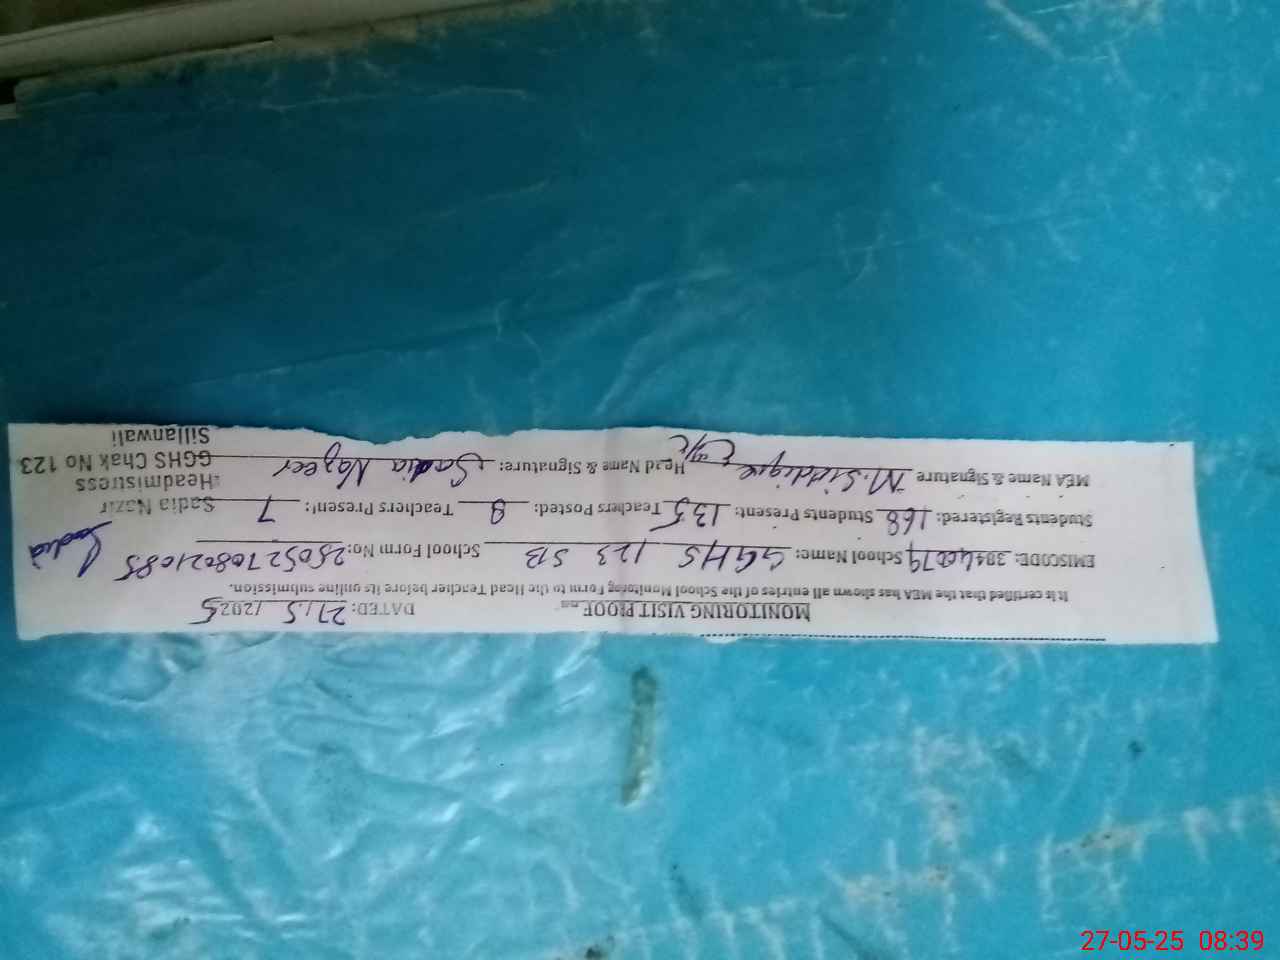 MONITORING VISIT PROOF DATED: 27/5/2025
It is certified that the MEA has shown all entries of the School Monitoring Form to the Head Teacher before its online submission.
EMISCODE: 38440079 School Name: GGHS 123 SB School Form No: 25052708021085
Students Registered: 168 Students Present: 135 Teachers Posted: 8 Teachers Present: 7
MEA Name & Signature M. Siddique Head Name & Signature: Sadia Nazeer
Sadia
Sadia Nazir
Headmistress
GGHS Chak No 123
Sillanwali
27-05-25 08:39